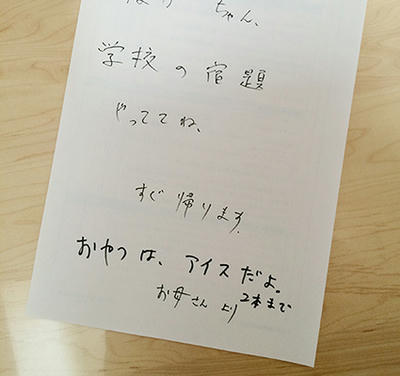 ちゃん、
学校の宿題
やっててね、
すぐ帰ります.
おやつは、アイスだよ。
2本まで
お母さんより